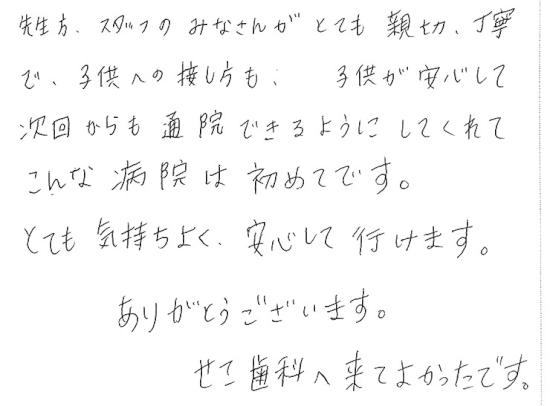 先生方、スタッフのみなさんがとても親切、丁寧
で、子供への接し方も、子供が安心して
次回からも通院できるようにしてくれて
こんな病院は初めてです。
とても気持ちよく、安心して行けます。
ありがとうございます。
せこ歯科へ来てよかったです。